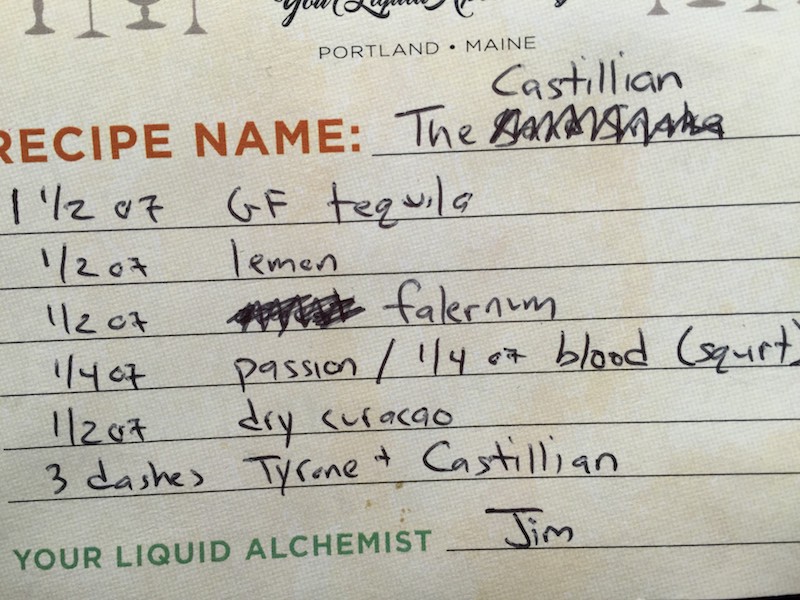 PORTLAND • MAINE
Castillian
RECIPE NAME: The
1 1/2 oz GF tequila
1/2 oz lemon
1/2 oz falernum
1/4 oz passion / 1/4 oz blood (squirt)
1/2 oz dry curacao
3 dashes Tyrone + Castillian
YOUR LIQUID ALCHEMIST Jim